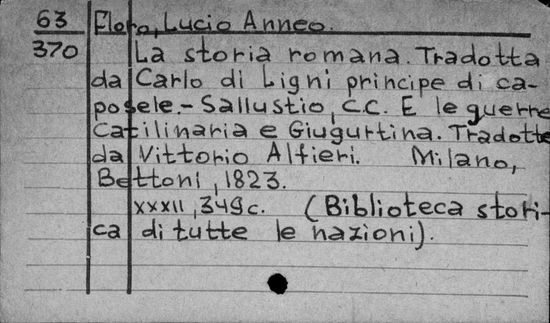 63 Floro, Lucio Anneo.
370 La storia romana. Tradotta
da Carlo di Ligni principe di ca-
posele.- Sallustio, C.C. E le guerre
Catilinaria e Giugurtina. Tradotte
da Vittorio Alfieri. Milano,
Bettoni, 1823.
XXXII, 349c. (Biblioteca stori-
ca di tutte le nazioni).